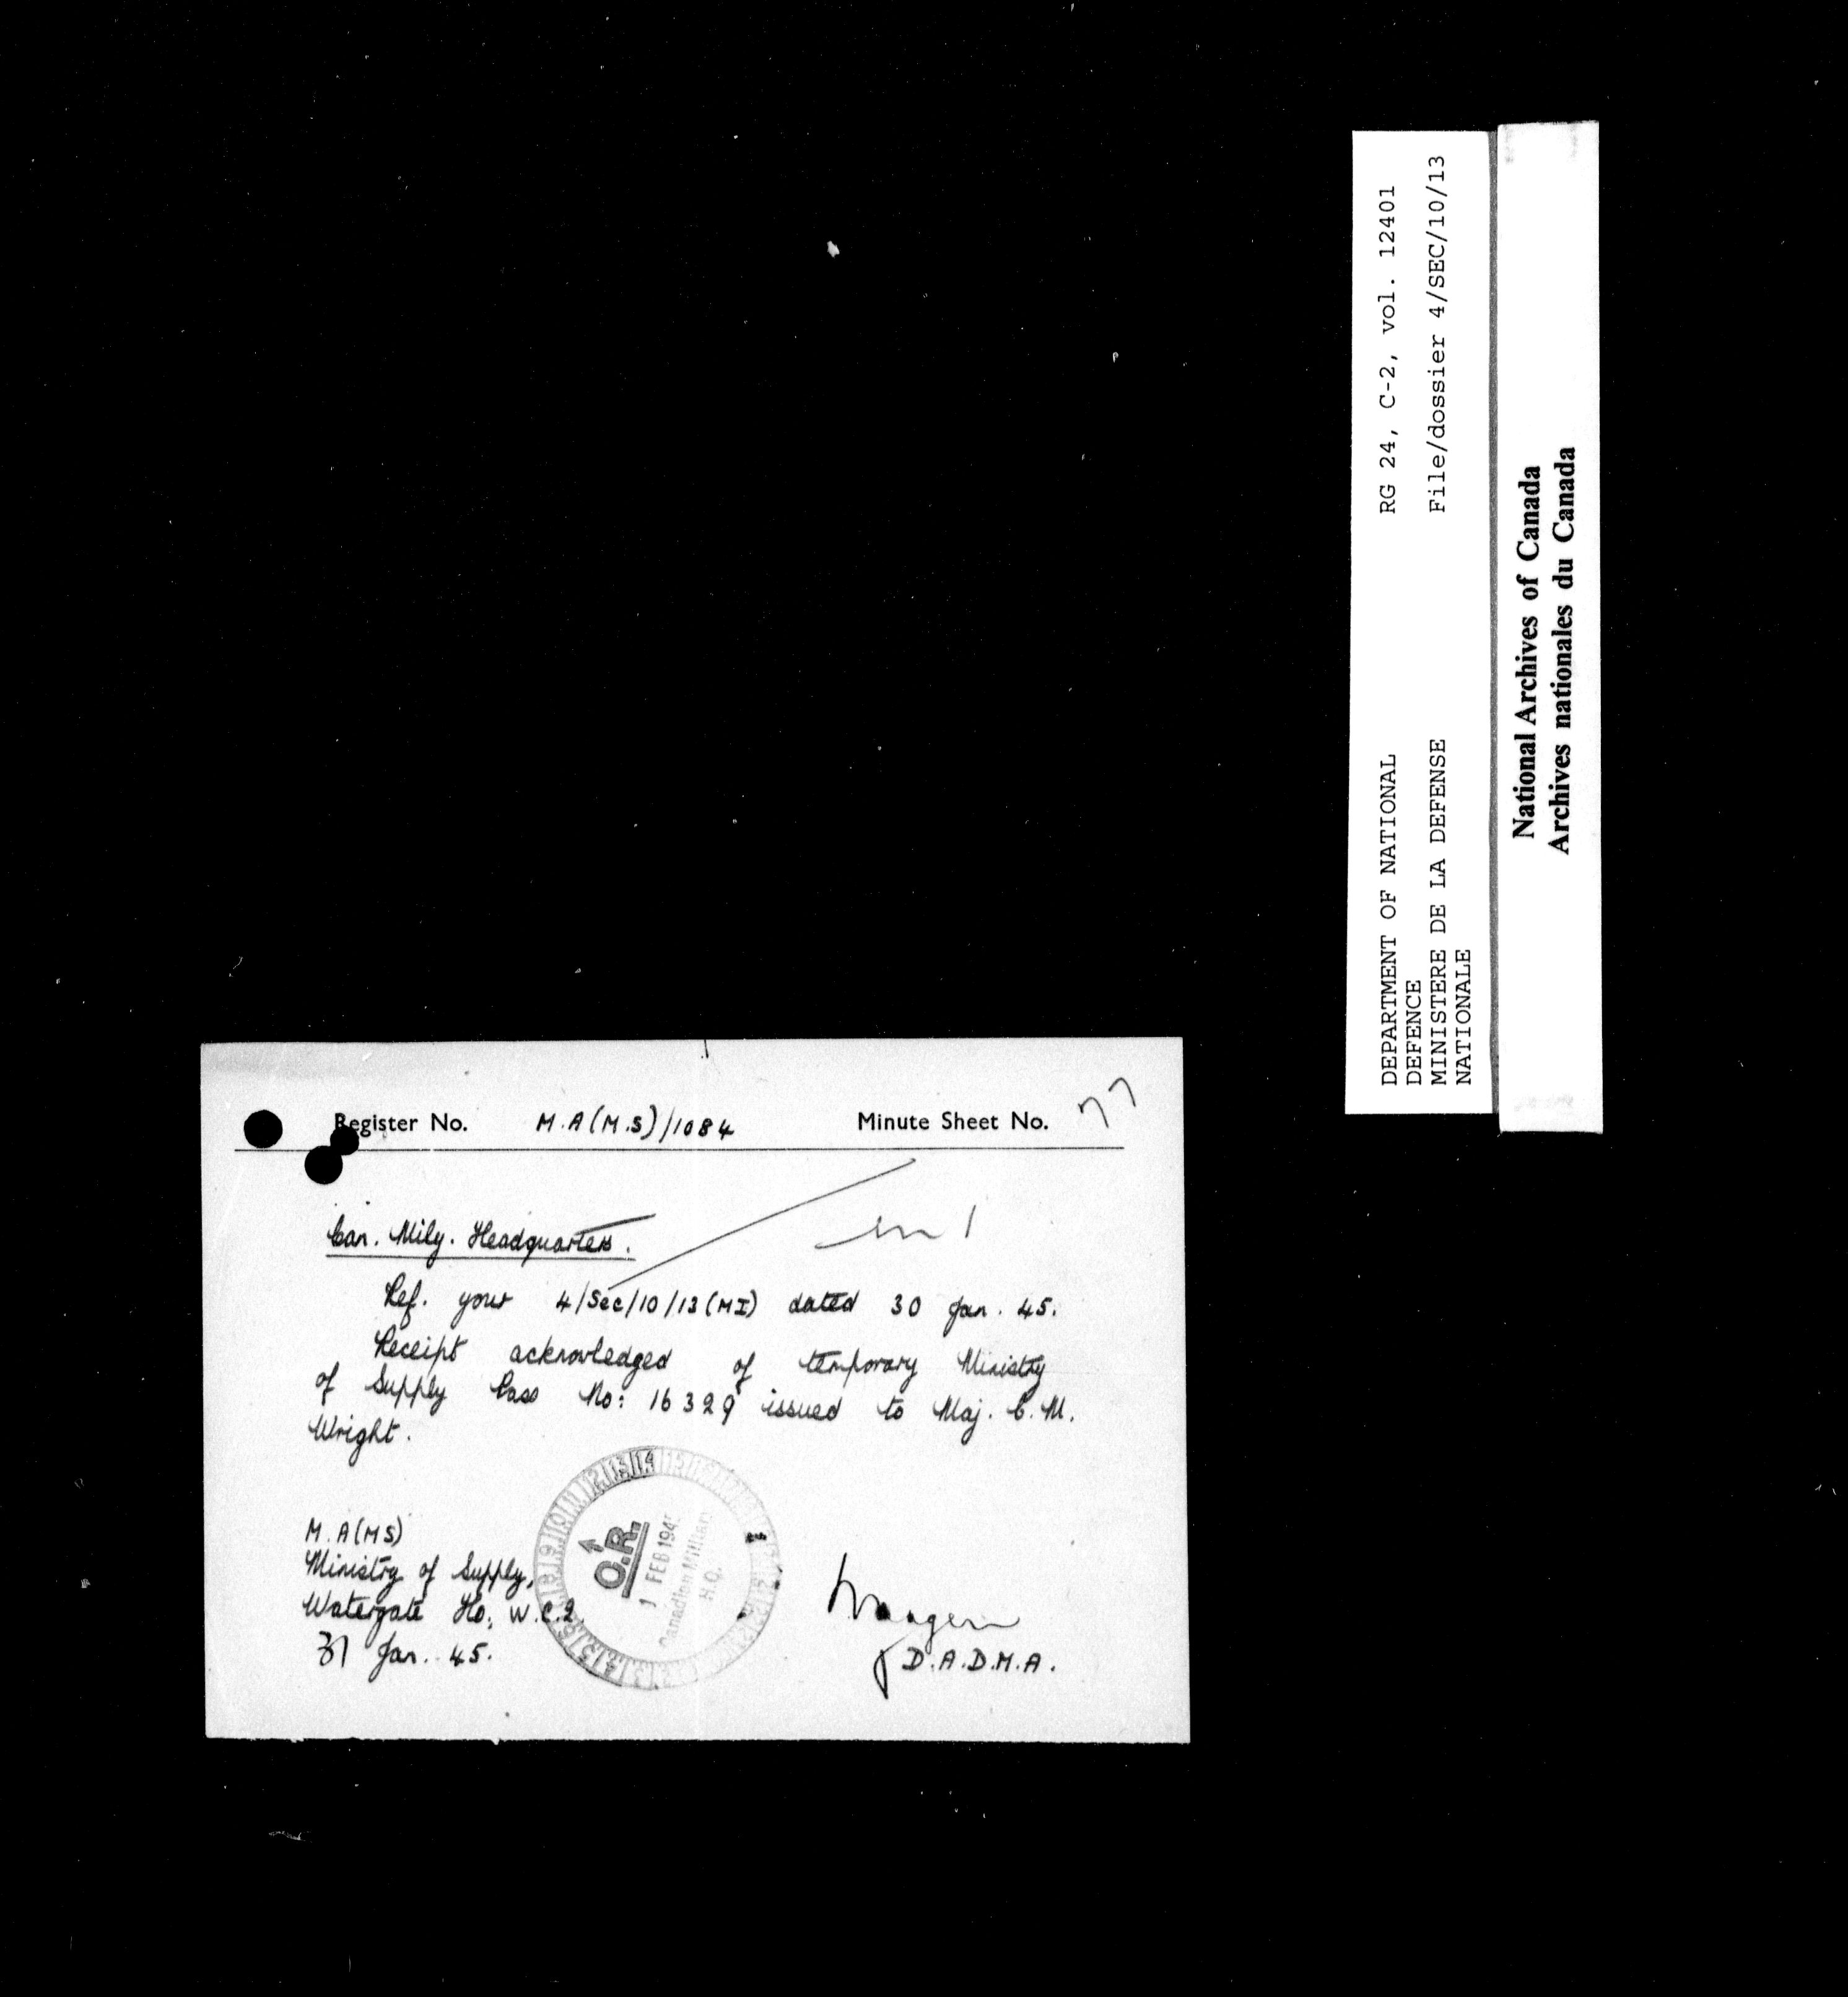 Register No. M.A(M.S)/1084 Minute Sheet No. 77
Can. Mily. Headquarters.
Ref. your 4/Sec/10/13(MI) dated 30 Jan. 45.
Receipt acknowledged of temporary Ministry
of Supply Pass No: 16329 issued to Maj. C.M.
Wright.
M.A(MS)
Ministry of Supply,
Watergate Ho, W.C.2.
31 Jan. 45.
O.R.
1 FEB 1945
Canadian Military
H.Q.
D.A.D.M.A.
DEPARTMENT OF NATIONAL RG 24, C-2, vol. 12401
DEFENCE
MINISTERE DE LA DEFENSE File/dossier 4/SEC/10/13
NATIONALE
National Archives of Canada
Archives nationales du Canada